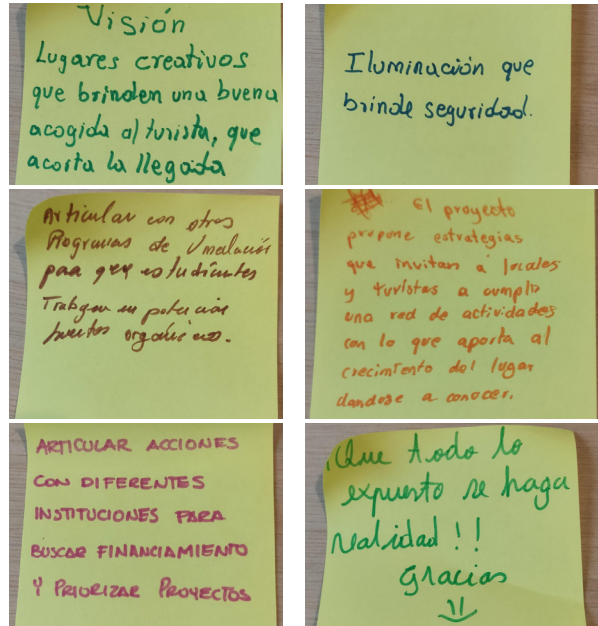 Visión
Lugares creativos
que brinden una buena
acogida al turista, que
acorta la llegada
Iluminación que
brinde seguridad.
Articular con otros
Programas de Vinculación
para que estudiantes
Trabajen en potenciar
huertos orgánicos.
El proyecto
propone estrategias
que invitan a locales
y turistas a cumplir
una red de actividades
con lo que aporta al
crecimiento del lugar
dandose a conocer.
ARTICULAR ACCIONES
CON DIFERENTES
INSTITUCIONES PARA
BUSCAR FINANCIAMIENTO
Y PRIORIZAR PROYECTOS
¡Que todo lo
expuesto se haga
realidad!!
Gracias